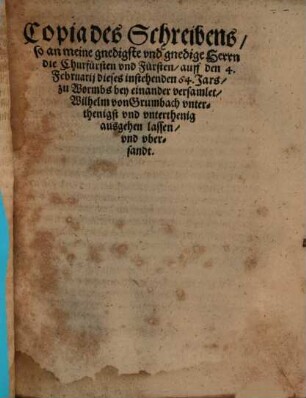 Copia des Schreibens/
so an meine gnedigste vnd gnedige Herrn
die Churfürsten vnd Fürsten/ auff den 4.
Februarij dieses instehenden 64. Jars/
zu Wormbs bey einander versamlet/
Wilhelm von Grumbach vnter-
thenigst vnd vnterthenig
ausgehen lassen/
vnd vber-
sandt.